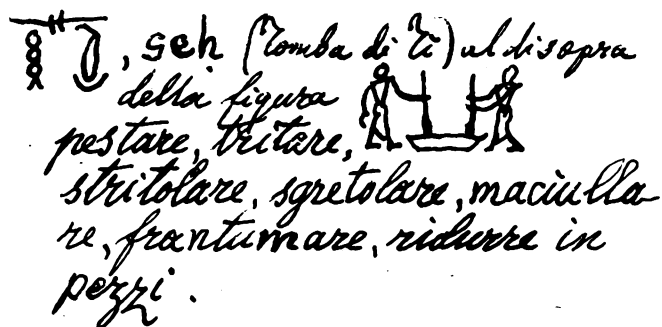 , seh (Tomba di Ti) al disopra
della figura
pestare, tritare,
stritolare, sgretolare, maciulla
re, frantumare, ridurre in
pezzi.